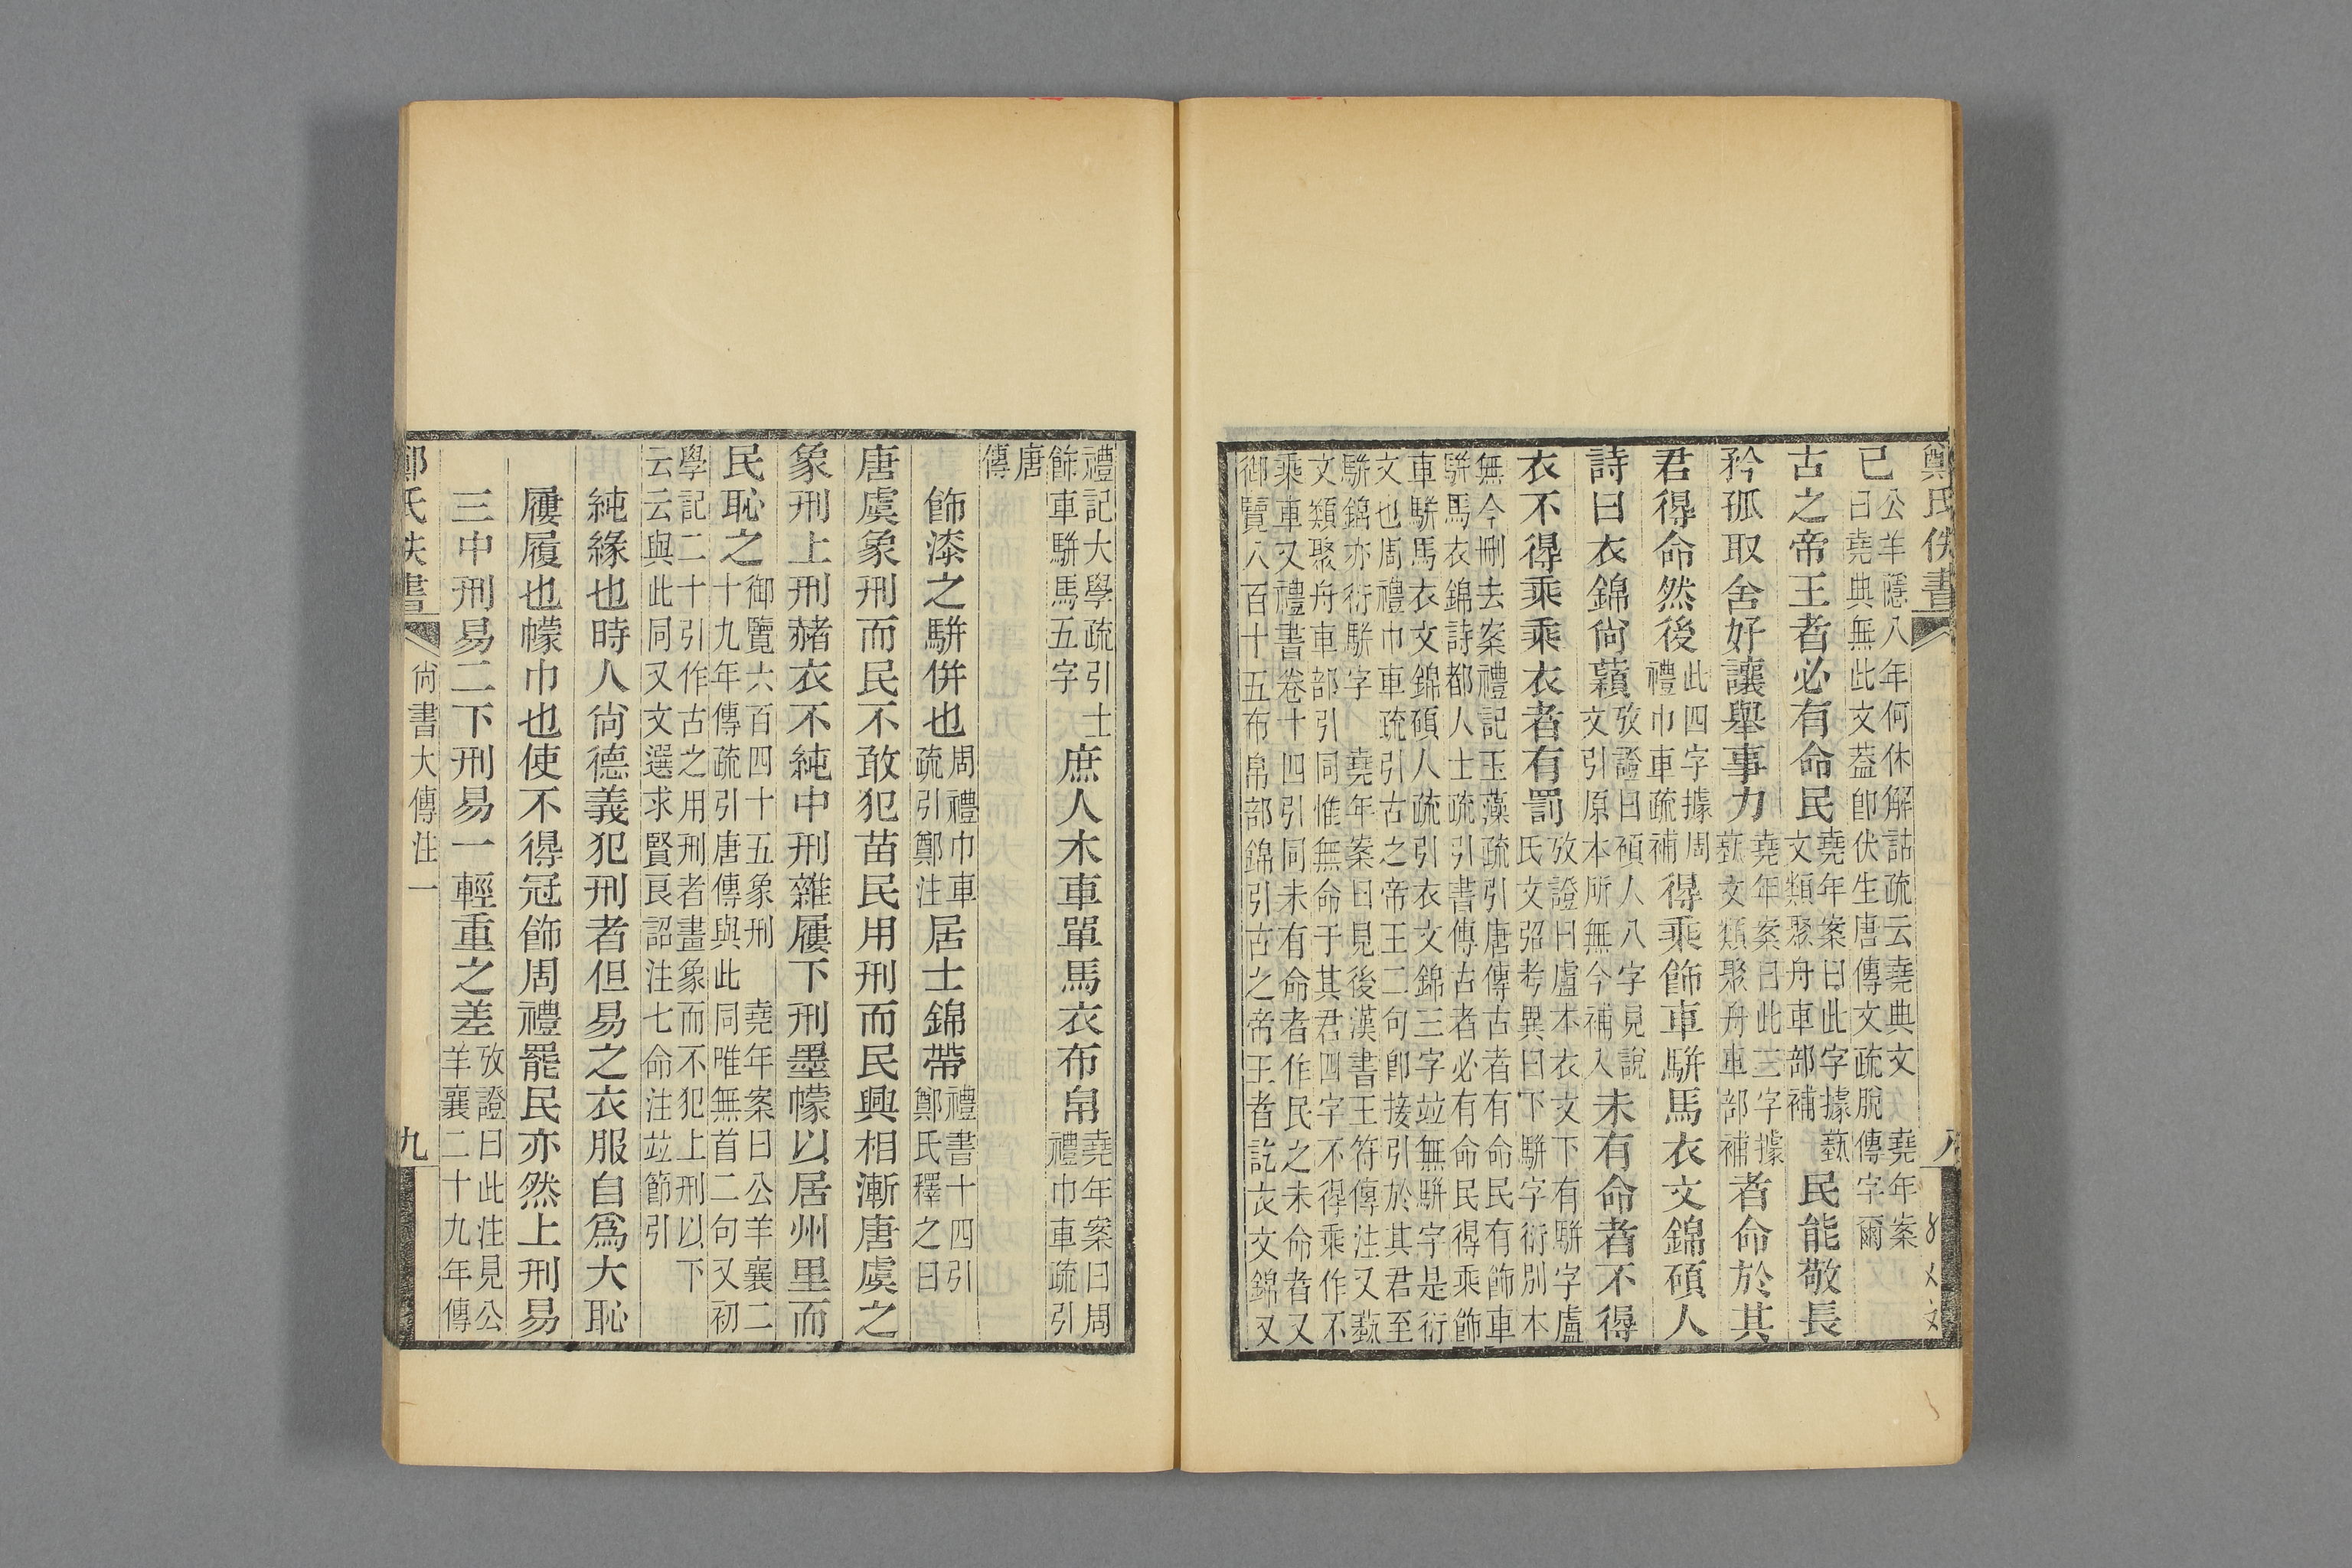 鄭氏佚書
己公羊隱八年何休解詁疏云堯典文堯年案曰堯典無此文葢卽伏生唐傳文疏脫傳字爾
古之帝王者必有命民堯年案曰此字據藝文類聚舟車部補民能敬長
矜孤取舍好讓舉事力堯年案曰此三字據藝文類聚舟車部補者命於其
君得命然後此四字據周禮巾車疏補得乘飾車駢馬衣文錦碩人
詩曰衣錦尙蘔攷證曰碩人八字見說文引原本所無今補入未有命者不得
衣不得乘乘衣者有罰攷證曰盧本衣文下有駢字盧氏文弨考異曰下駢字衍別本
無今刪去案禮記玉藻疏引唐傳古者有命民有飾車
駢馬衣錦詩都人士疏引書傳古者必有命民得乘飾
車駢馬衣文錦碩人疏引衣文錦三字竝無駢字是衍
文也周禮巾車疏引古之帝王二句卽接引於其君至
駢錦亦衍駢字堯年案曰見後漢書王符傳注又藝
文類聚舟車部引同惟無命于其君四字不得乘作不
乘車又禮書卷十四引同未有命者作民之未命者又
御覽八百十五布帛部錦引古之帝王者訖衣文錦又
禮記大學疏引士庶人木車單馬衣布帛堯年案曰周禮巾車疏引
飾車駢馬五字
唐傳
飾漆之駢併也周禮巾車疏引鄭注居士錦帶禮書十四引鄭氏釋之曰
唐虞象刑而民不敢犯苗民用刑而民興相漸唐虞之
象刑上刑赭衣不純中刑雜屨下刑墨幪以居州里而
民恥之御覽六百四十五象刑堯年案曰公羊襄二十九年傳疏引唐傳與此同唯無首二句又初
學記二十引作古之用刑者畫象而不犯上刑以下
云云與此同又文選求賢良詔注七命注竝節引
純緣也時人尙德義犯刑者但易之衣服自爲大恥
屨履也幪巾也使不得冠飾周禮罷民亦然上刑易
三中刑易二下刑易一輕重之差攷證曰此注見公羊襄二十九年傳
尙書大傳注一
九